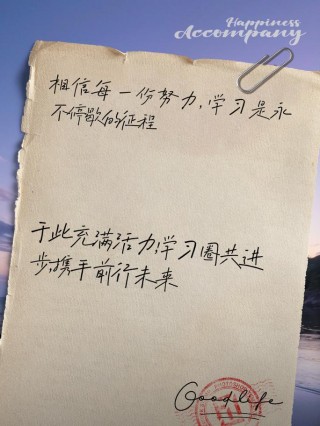 Happiness
Accompany
相信每一份努力，学习是永
不停歇的征程
于此充满活力学习圈共进
步，携手前行未来
Goodlife